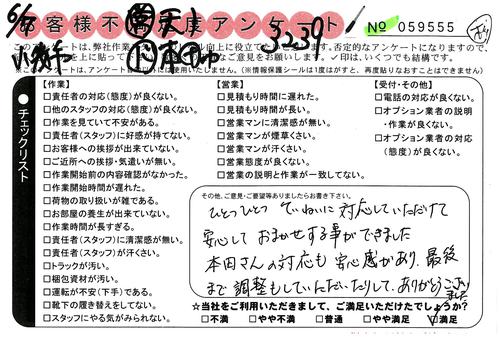 お客様不満足度アンケート
No 059555
3239
このアンケートは、弊社作業
✓印は、いくつでも結構です。
【作業】
□責任者の対応(態度)が良くない。
□他のスタッフの対応(態度)が良くない。
□作業を見ていて不安がある。
□責任者(スタッフ)に好感が持てない。
□お客様への挨拶が出来ていない。
□ご近所への挨拶・気遣いが無い。
□作業開始前の内容確認がなかった。
□作業開始時間が遅れた。
□荷物の取り扱いが雑である。
□お部屋の養生が出来ていない。
□作業時間が長すぎる。
□責任者(スタッフ)に清潔感が無い。
□責任者(スタッフ)が汗くさい。
□トラックが汚い。
□梱包資材が汚い。
□運転が不安(下手)である。
□靴下の履き替えをしてない。
□スタッフにやる気がみられない。
【営業】
□見積もり時間に遅れた。
□見積もり時間が長い。
□営業マンに清潔感が無い。
□営業マンが煙草くさい。
□営業マンが汗くさい。
□営業態度が良くない。
□営業の説明と作業が一致してない。
【受付・その他】
□電話の対応が良くない。
□オプション業者の説明
・作業が良くない。
□オプション業者の対応
(態度)が良くない。
●チェックリスト
その他、ご意見・ご要望等ありましたらお書き下さい。
ひとつひとつ ていねいに対応していただけて
安心して おまかせする事ができました
本田さんの対応も 安心感があり、最後
まで調整もしていただいたりして、ありがとうございました
☆当社をご利用いただきまして、ご満足いただけたでしょうか?
□不満 □やや不満 □普通 □やや満足 ☑満足